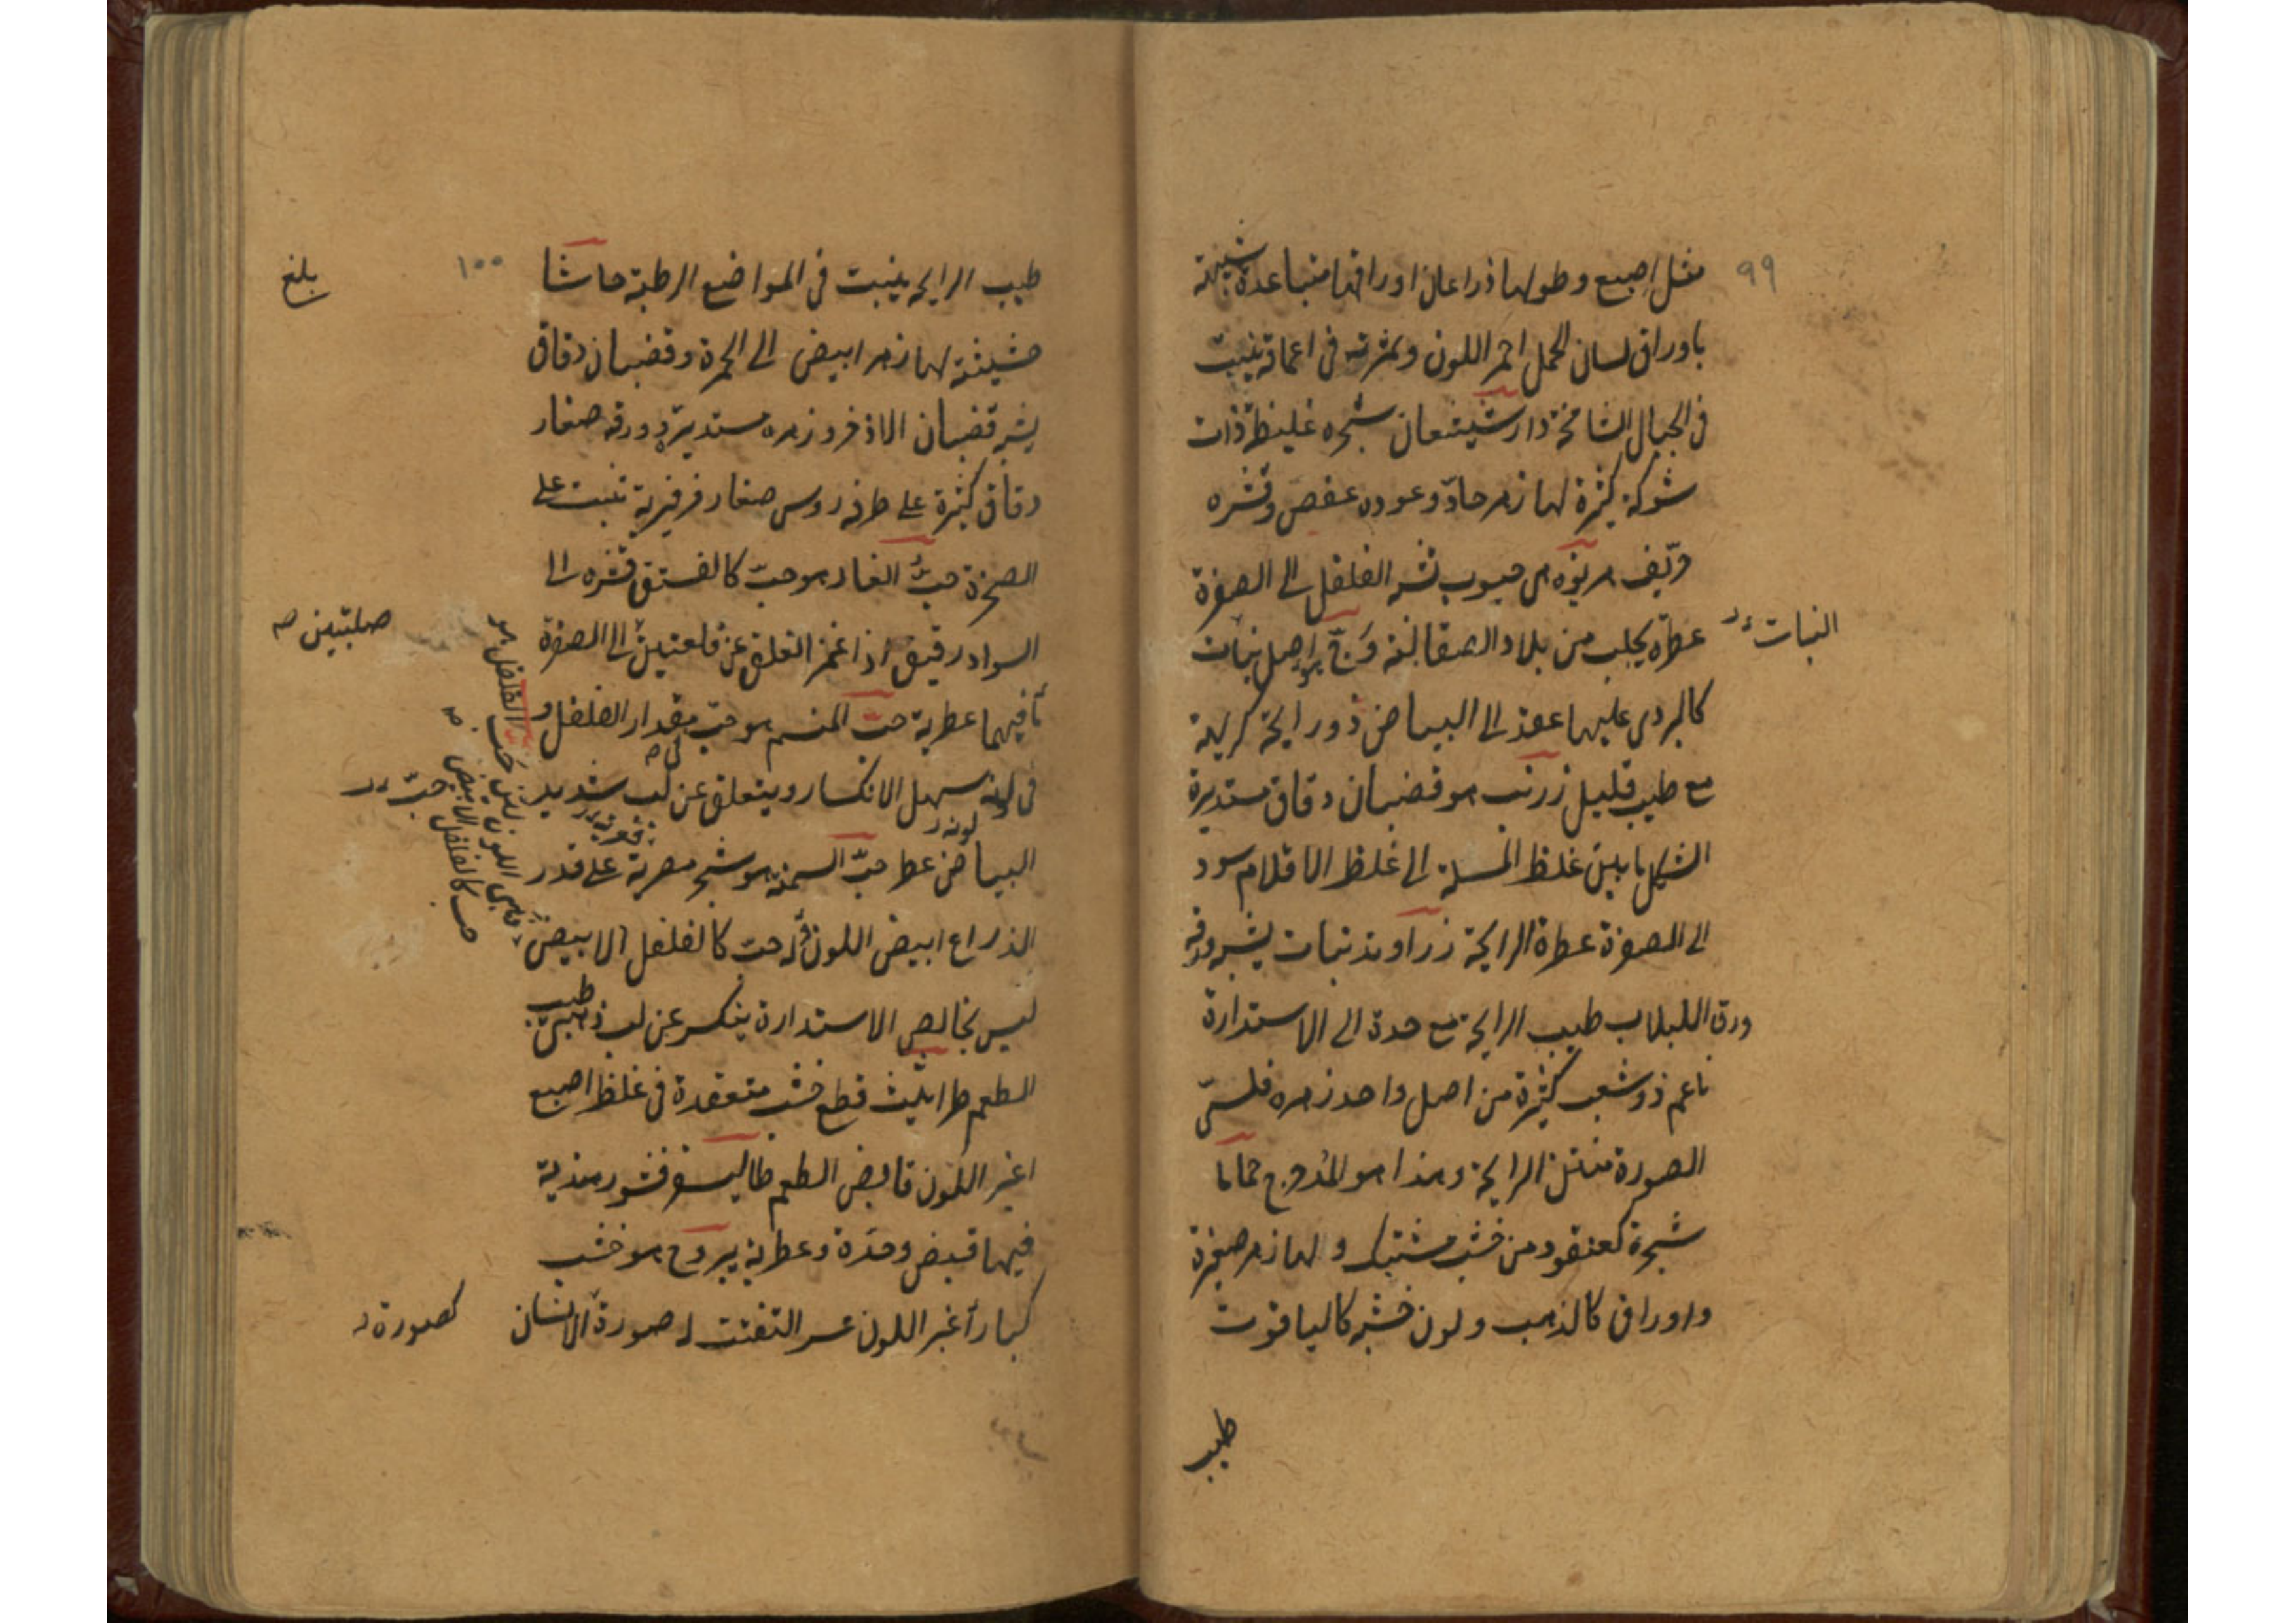 ٩٩
مثل اصبع وطولها ذراعان اوراقها متباعدة شبيهة
باوراق لسان الحمل احمر اللون وثمرته في اعماقه ينبت
في الجبال الشامخة دارشيشعان شجره غليظة ذات
شوكة كثيرة لها زهر حاد وعوده عفص وقشره
هريوه هي حبوب تشبه الفلفل الى الصفرة
عطره يجلب من بلاد الصقالبة وج هو اصل نبات
النبات
كالبردي عليها عقد الى البياض ذو رايحة كريهة
مع طيب قليل زرنب هو قضبان دقاق مستديرة
الشكل ما بين غلظ المسلة الى غلظ الاقلام سود
الى الصفرة عطرة الرايحة زراوند نبات يشبه ورقه
ورق اللبلاب طيب الرايحة مع حدة الى الاستدارة
ناعم ذو شعب كثيرة من اصل واحد زهره
الصورة منتن الرايحة وهذا هو المدحرج حماما
شجرة كعنقود من خشب مشتبك ولها زهر صغيرة
واوراق كالذهب ولون خشبه كالياقوت
طيب
١٠٠
بلغ
طيب الرايحة ينبت في المواضع الرطبة حاشا
حشيشة لها زهر ابيض الى الحمرة وقضبان دقاق
يشبه قضبان الاذخر وزهره مستديرة ورقه صغار
دقاق كثيرة على طرفه روس صغار فرفيرية تنبت على
الصخرة حب الغار هو حب كالفستق قشره الى
السواد رقيق اذا غمز انفلق عن فلقتين الى الصفرة
صلبتين صح
ما فيهما عطرية حب المنسم هو حب مقدار الفلفل و
في لونه سهل الانكسار وينفلق عن لب شديد
البياض عطر حب السمنة هو شجر مصرية على قدر
الذراع ابيض اللون له حب كالفلفل الابيض
ليس بخالص الاستدارة ينكسر عن لب طيب
الطعم طراثيث قطع خشب متعقدة في غلظ اصبع
اغبر اللون قابض الطعم طاليسفر قشور هندية
فيها قبض وحدة وعطرية يبروح هو خشب
كبار أغبر اللون عسر التفتت له صورة الانسان
كصورة
حب الفلفل هو
حب كالفلفل الابيض
حب